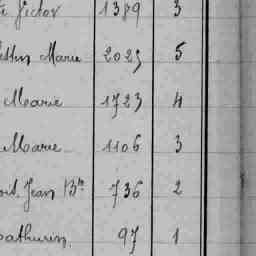 Victor 1389 3
Marie 2025 5
Marie 1723 4
Marie 1106 3
Jean Bte 736 2
Mathurin 97 1